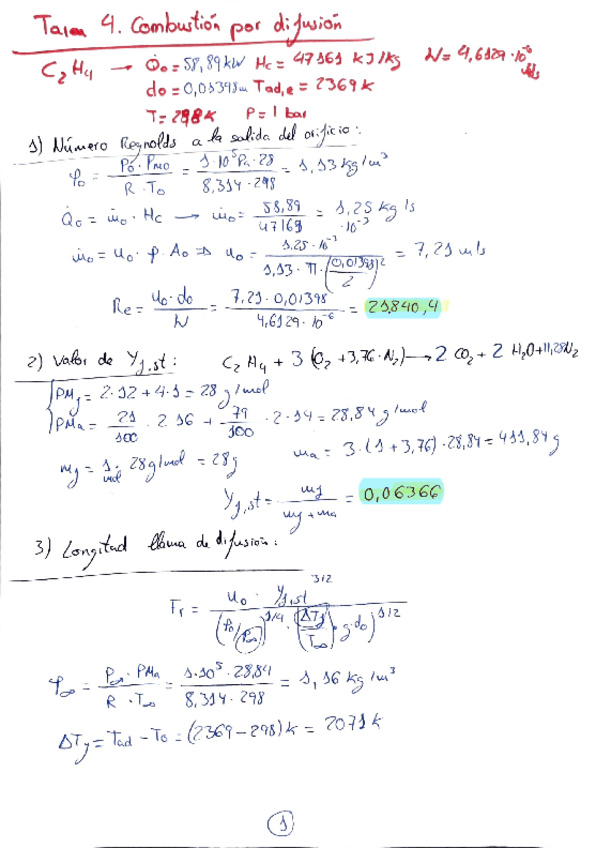 Tarea 4. Combustión por difusión
C₂H₄ → Q̇o = 58,89 kW Hc = 47161 kJ/kg N = 4,6129·10⁻⁶
do = 0,01398m Tad,e = 2369 K
T = 298K P = 1 bar
1) Número Reynolds a la salida del orificio:
ρo = Po · PMO / R · To = 1·10⁵Pa·28 / 8,314·298 = 1,13 kg/m³
Q̇o = ṁo · Hc → ṁo = 58,89 / 47161 = 1,25 kg/s ·10⁻³
ṁo = uo · ρ · Ao ⇒ uo = 1,25·10⁻³ / 1,13·π·(0,01398/2)² = 7,21 m/s
Re = uo·do / N = 7,21·0,01398 / 4,6129·10⁻⁶ = 21.840,4
2) Valor de Yf,st: C₂H₄ + 3(O₂ + 3,76·N₂) → 2 CO₂ + 2 H₂O + 11,28N₂
PMf = 2·12 + 4·1 = 28 g/mol
PMa = 21/100 · 2·16 + 79/100 · 2·14 = 28,84 g/mol
mf = 1 mol · 28g/mol = 28g ma = 3·(1 + 3,76)·28,84 = 411,84 g
Yf,st = mf / mf + ma = 0,06366
3) Longitud llama de difusión:
Fr = uo · Yf,st^3/2 / (ρo/ρ∞)^1/4 · (ΔTf/T∞ · g·do)^1/2
ρ∞ = P∞ · PMa / R · T∞ = 1·10⁵·28,84 / 8,314·298 = 1,16 kg/m³
ΔTf = Tad − To = (2369 − 298)K = 2071 K
1